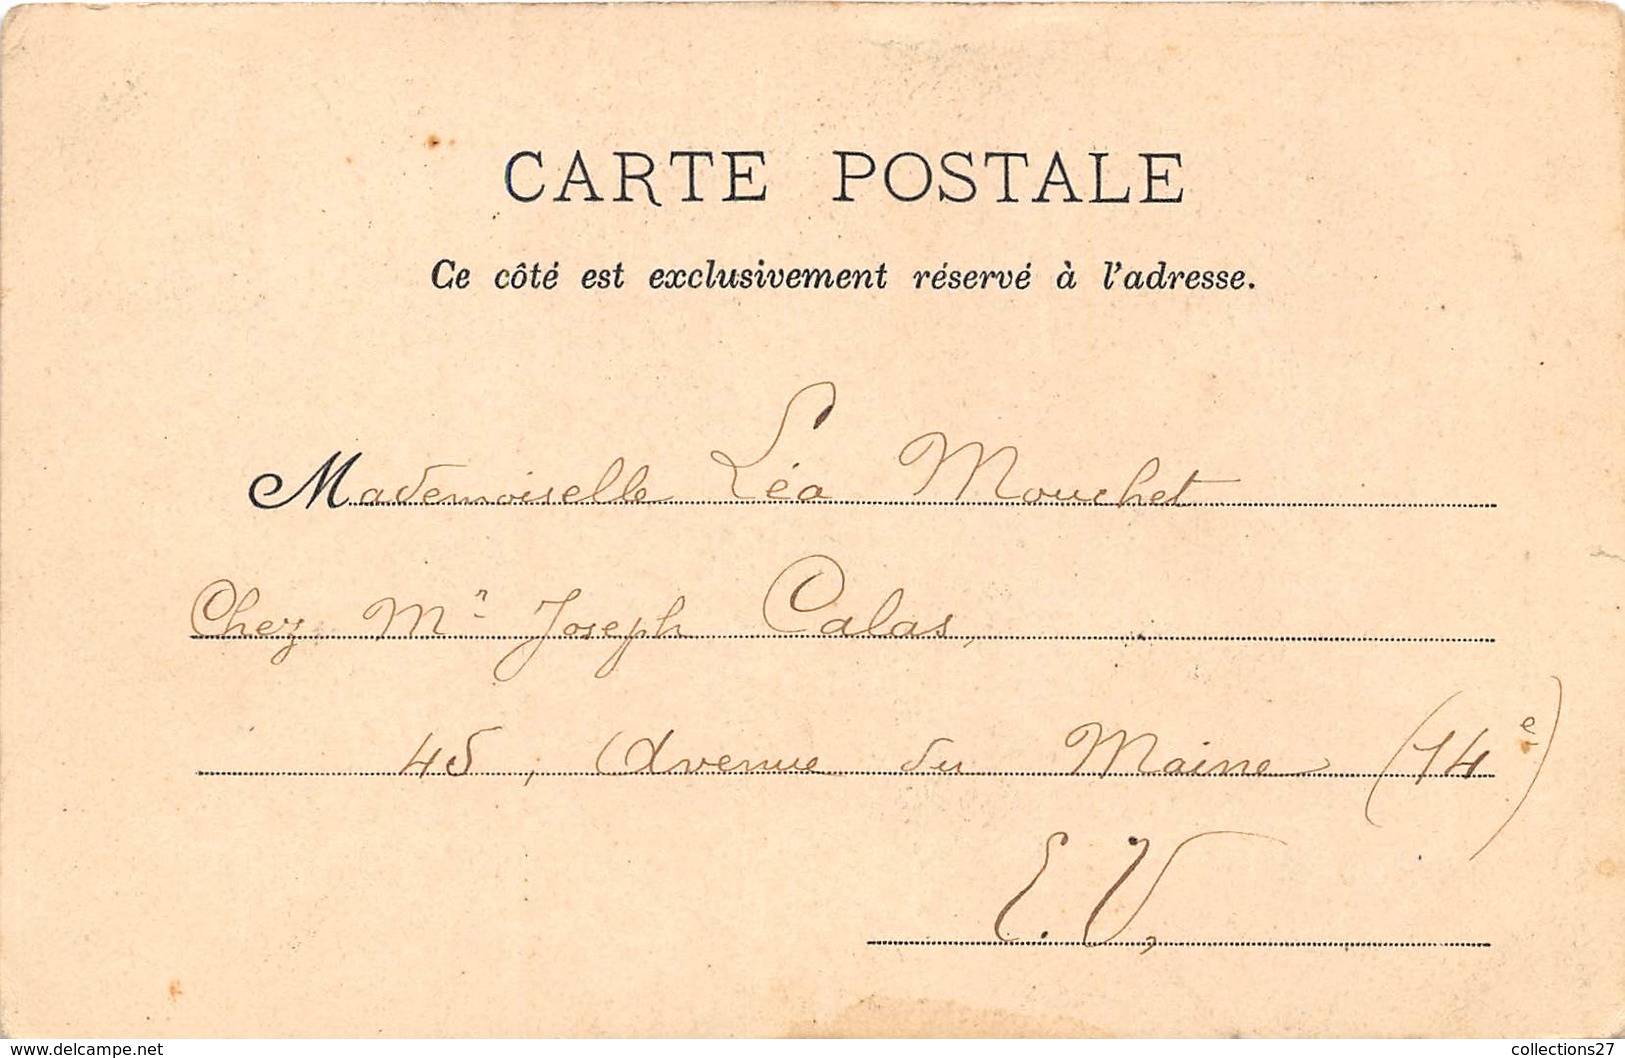 CARTE POSTALE
Ce côté est exclusivement réservé à l'adresse.
Mademoiselle Léa Mouchet
Chez Mr Joseph Calas,
45, Avenue du Maine (14e)
E.V,
www.delcampe.net
collections27